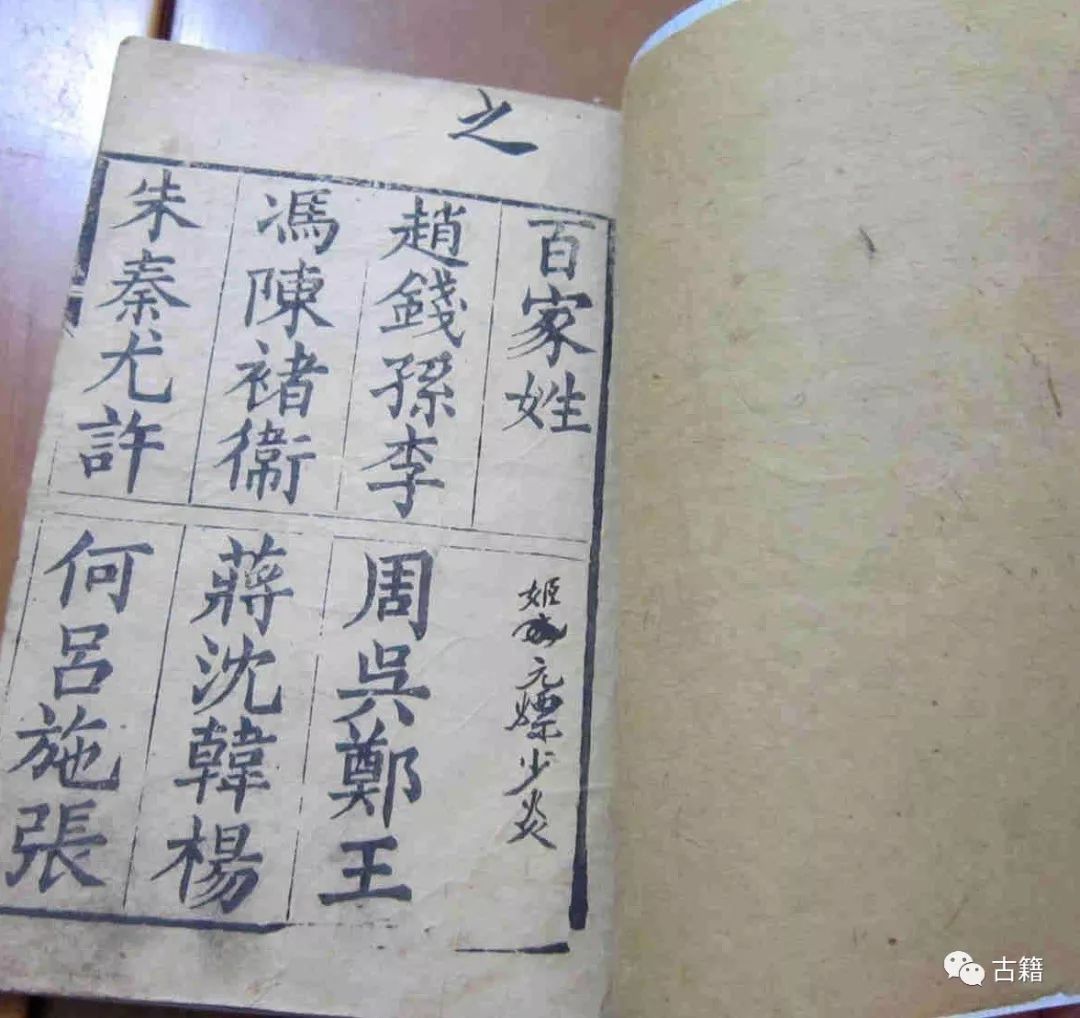 之
百家姓
趙錢孫李
周吳鄭王
馮陳褚衛
蔣沈韓楊
朱秦尤許
何呂施張
姬
元嫖少炎
古籍